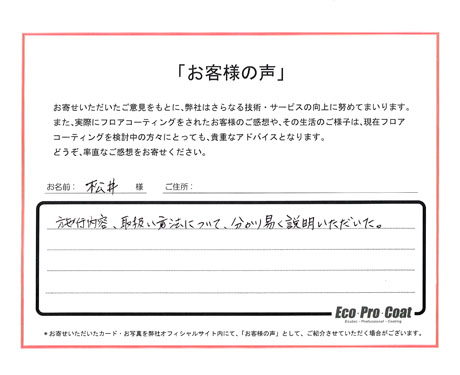 「お客様の声」
お寄せいただいたご意見をもとに、弊社はさらなる技術・サービスの向上に努めてまいります。
また、実際にフロアコーティングをされたお客様のご感想や、その生活のご様子は、現在フロア
コーティングを検討中の方々にとっても、貴重なアドバイスとなります。
どうぞ、率直なご感想をお寄せください。
お名前： 松井 様 ご住所：
施行内容、取扱い方法について、分かり易く説明いただいた。
Eco・Pro・Coat
Ecolex - Professional - Coating
＊お寄せいただいたカード・お写真を弊社オフィシャルサイト内にて、「お客様の声」として、ご紹介させていただく場合がございます。